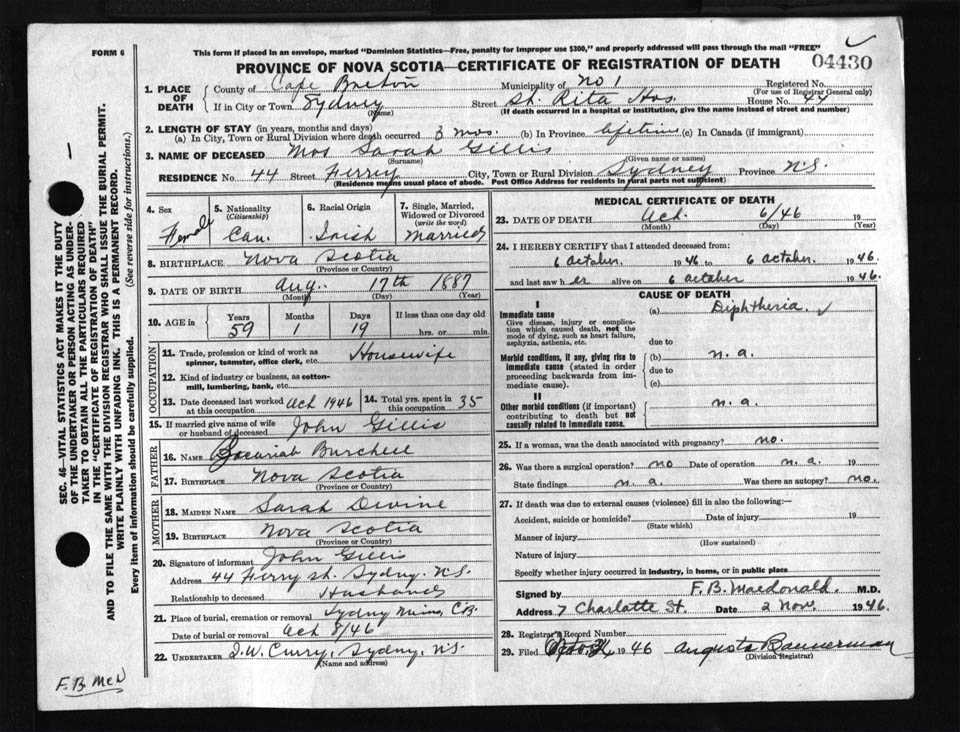 FORM 6
This form if placed in an envelope, marked "Dominion Statistics—Free, penalty for improper use $300," and properly addressed will pass through the mail "FREE"
PROVINCE OF NOVA SCOTIA—CERTIFICATE OF REGISTRATION OF DEATH
04430
1. PLACE OF DEATH
County of Cape Breton Municipality of No 1 Registered No.
(For use of Registrar General only)
If in City or Town Sydney Street St. Rita Hos. House No. 44
(Name) (If death occurred in a hospital or institution, give the name instead of street and number)
2. LENGTH OF STAY (in years, months and days)
(a) In City, Town or Rural Division where death occurred 3 mos. (b) In Province lifetime (c) In Canada (if immigrant)
3. NAME OF DECEASED Mrs Sarah Gillis
(Surname) (Given name or names)
RESIDENCE No. 44 Street Ferry City, Town or Rural Division Sydney Province N.S.
(Residence means usual place of abode. Post Office Address for residents in rural parts not sufficient)
4. Sex Female
5. Nationality (Citizenship) Can.
6. Racial Origin Irish
7. Single, Married, Widowed or Divorced (write the word) Married
8. BIRTHPLACE Nova Scotia
(Province or Country)
9. DATE OF BIRTH Aug. 17th 1887
(Month) (Day) (Year)
10. AGE in Years 59 Months 1 Days 19 If less than one day old hrs. or min.
OCCUPATION
11. Trade, profession or kind of work as spinner, teamster, office clerk, etc. Housewife
12. Kind of industry or business, as cotton-mill, lumbering, bank, etc.
13. Date deceased last worked at this occupation Oct 1946
14. Total yrs. spent in this occupation 35
15. If married give name of wife or husband of deceased John Gillis
FATHER
16. NAME Burchell
17. BIRTHPLACE Nova Scotia
(Province or Country)
MOTHER
18. MAIDEN NAME Sarah Devine
19. BIRTHPLACE Nova Scotia
(Province or Country)
20. Signature of informant John Gillis
Address 44 Ferry St. Sydney. N.S.
Relationship to deceased Husband
21. Place of burial, cremation or removal Sydney Mines, C.B.
Date of burial or removal Oct 8/46
22. UNDERTAKER Curry, Sydney, N.S.
(Name and address)
F. B McD
MEDICAL CERTIFICATE OF DEATH
23. DATE OF DEATH Oct. 6/46 19
(Month) (Day) (Year)
24. I HEREBY CERTIFY that I attended deceased from:
6 October. 1946 to 6 October. 1946.
and last saw her alive on 6 October 1946.
CAUSE OF DEATH
I
Immediate cause
Give disease, injury or complication which caused death, not the mode of dying, such as heart failure, asphyxia, asthenia, etc.
(a) Diphtheria.
due to
Morbid conditions, if any, giving rise to immediate cause (stated in order proceeding backwards from immediate cause).
(b) n.a.
due to
(c)
II
Other morbid conditions (if important) contributing to death but not causally related to immediate cause.
n.a.
25. If a woman, was the death associated with pregnancy? no.
26. Was there a surgical operation? no Date of operation n.a. 19
State findings n.a. Was there an autopsy? no.
27. If death was due to external causes (violence) fill in also the following:—
Accident, suicide or homicide? Date of injury 19
(State which)
Manner of injury
(How sustained)
Nature of injury
Specify whether injury occurred in industry, in home, or in public place
Signed by F.B. Macdonald. M.D.
Address 7 Charlotte St. Date 2 Nov. 1946.
28. Registrar's Record Number
29. Filed 1946 Augusta Bannerman
(Division Registrar)
SEC. 46—VITAL STATISTICS ACT MAKES IT THE DUTY
OF THE UNDERTAKER OR PERSON ACTING AS UNDER-
TAKER TO OBTAIN ALL THE PARTICULARS REQUIRED
IN THE "CERTIFICATE OF REGISTRATION OF DEATH"
AND TO FILE THE SAME WITH THE DIVISION REGISTRAR WHO SHALL ISSUE THE BURIAL PERMIT.
WRITE PLAINLY WITH UNFADING INK. THIS IS A PERMANENT RECORD.
Every item of information should be carefully supplied. (See reverse side for instructions.)